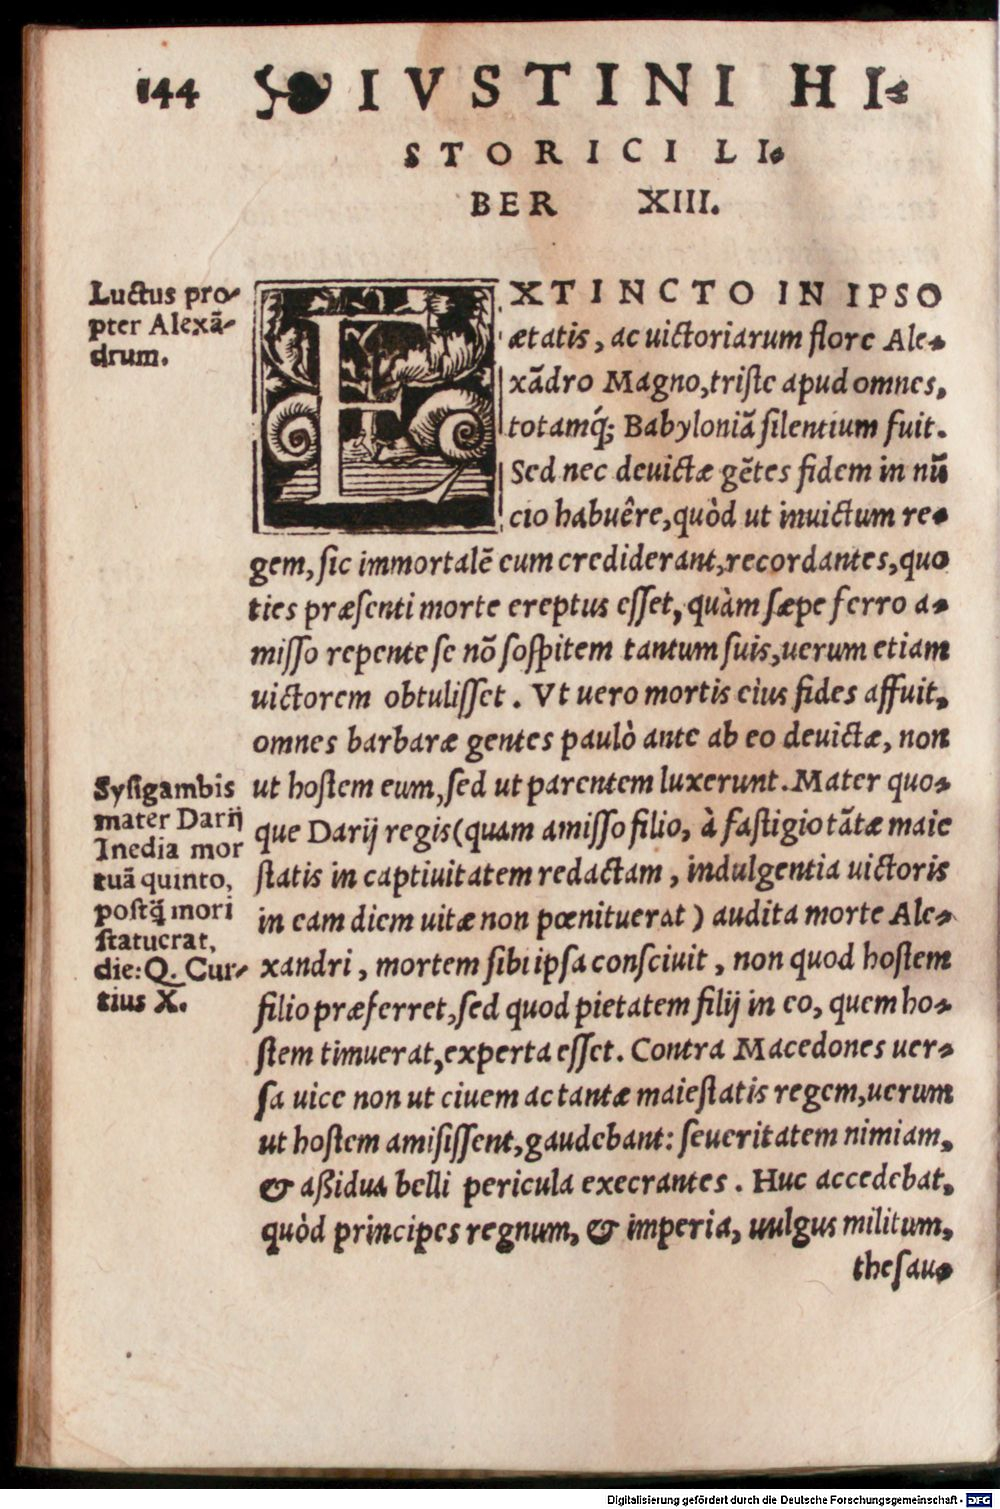 144 IVSTINI HI-
STORICI LI-
BER XIII.
Luctus pro-
pter Alexã-
drum.
EXTINCTO IN IPSO
ætatis, ac uictoriarum flore Ale-
xãdro Magno, triste apud omnes,
totamq́; Babyloniã silentium fuit.
Sed nec deuictæ gẽtes fidem in nũ
cio habuêre, quòd ut inuictum re-
gem, sic immortalẽ eum crediderant, recordantes, quo
ties præsenti morte ereptus esset, quàm sæpe ferro a-
misso repente se nõ sospitem tantum suis, uerum etiam
uictorem obtulisset. Vt uero mortis eius fides affuit,
omnes barbaræ gentes paulò ante ab eo deuictæ, non
ut hostem eum, sed ut parentem luxerunt. Mater quo-
que Darij regis (quam amisso filio, à fastigio tãtæ maie
statis in captiuitatem redactam, indulgentia uictoris
in eam diem uitæ non pœnituerat) audita morte Ale-
xandri, mortem sibi ipsa consciuit, non quod hostem
filio præferret, sed quod pietatem filij in eo, quem ho-
stem timuerat, experta esset. Contra Macedones uer-
sa uice non ut ciuem ac tantæ maiestatis regem, uerum
ut hostem amisissent, gaudebant: seueritatem nimiam,
& aßidua belli pericula execrantes. Huc accedebat,
quòd principes regnum, & imperia, uulgus militum,
thesau-
Sysigambis
mater Darij
Inedia mor
tuã quinto,
postq̃ mori
statuerat,
die: Q. Cur-
tius X.
Digitalisierung gefördert durch die Deutsche Forschungsgemeinschaft - DFG